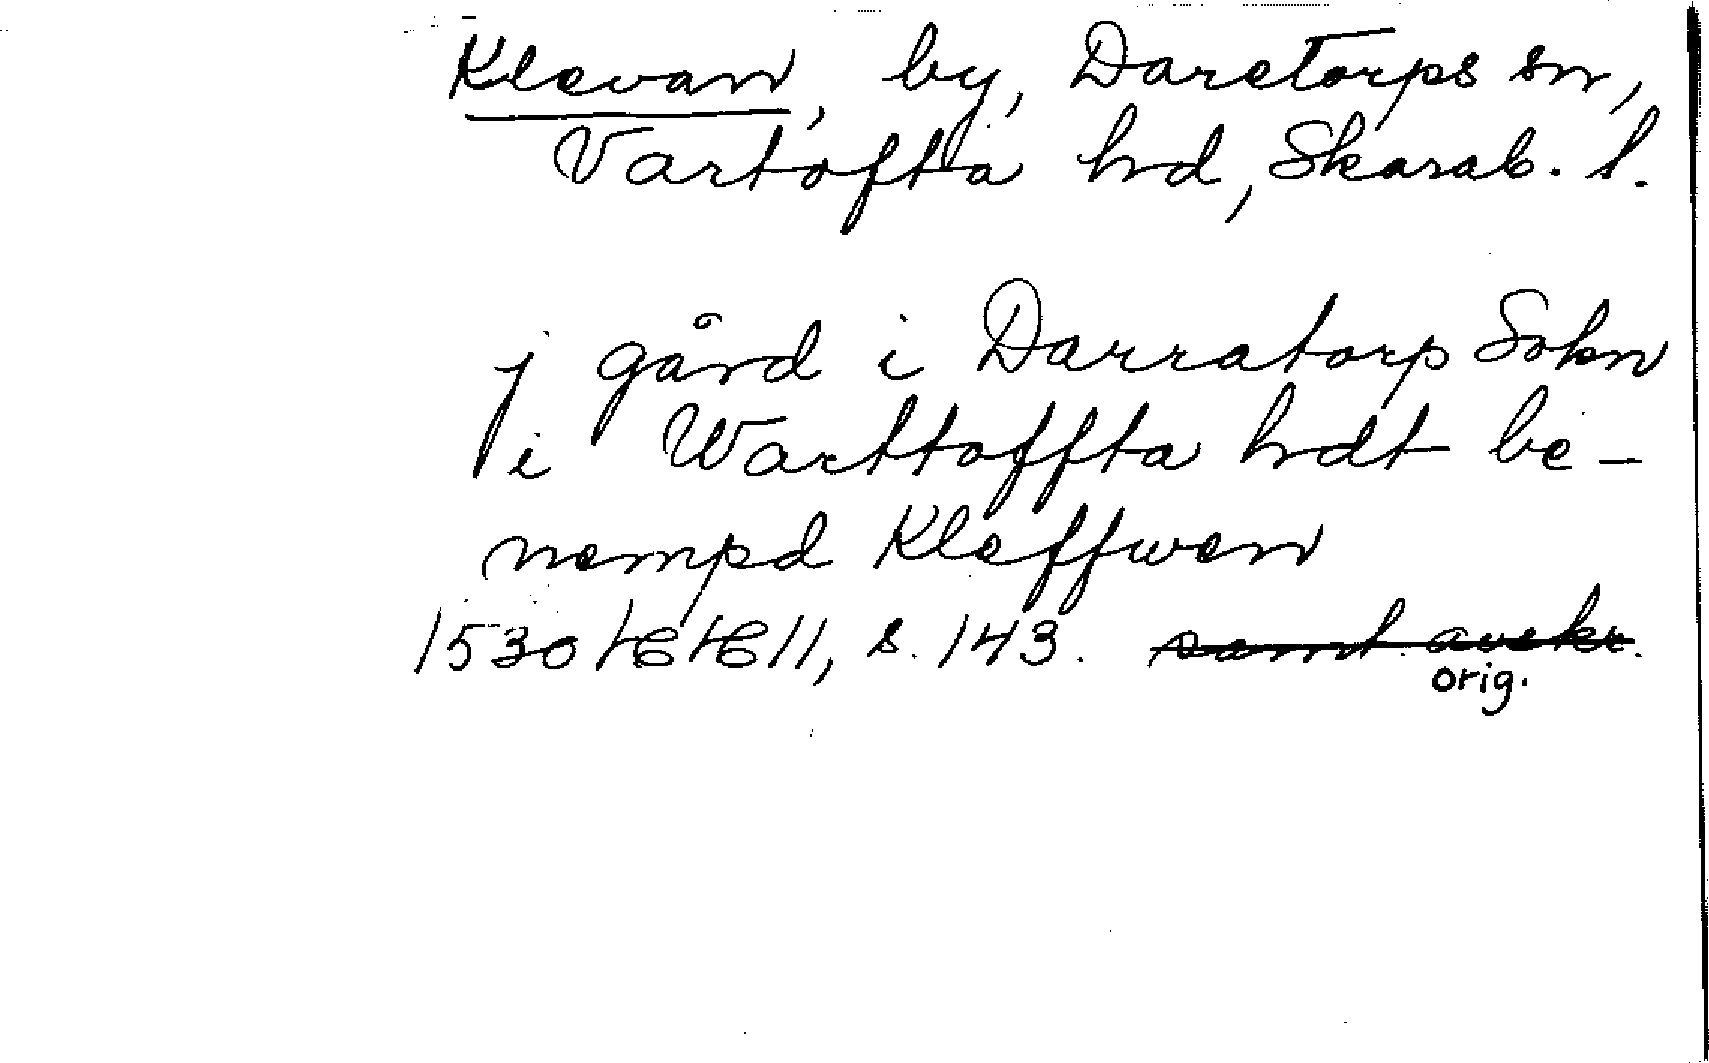 Klevan, by, Daretorps sn,
Vartofta hd, Skarab. l.
j gård i Darratorp Sokn
i Warttoffta hdt be-
nempd Kleffwen
1530 11, s. 143. samt. avskr.
orig.